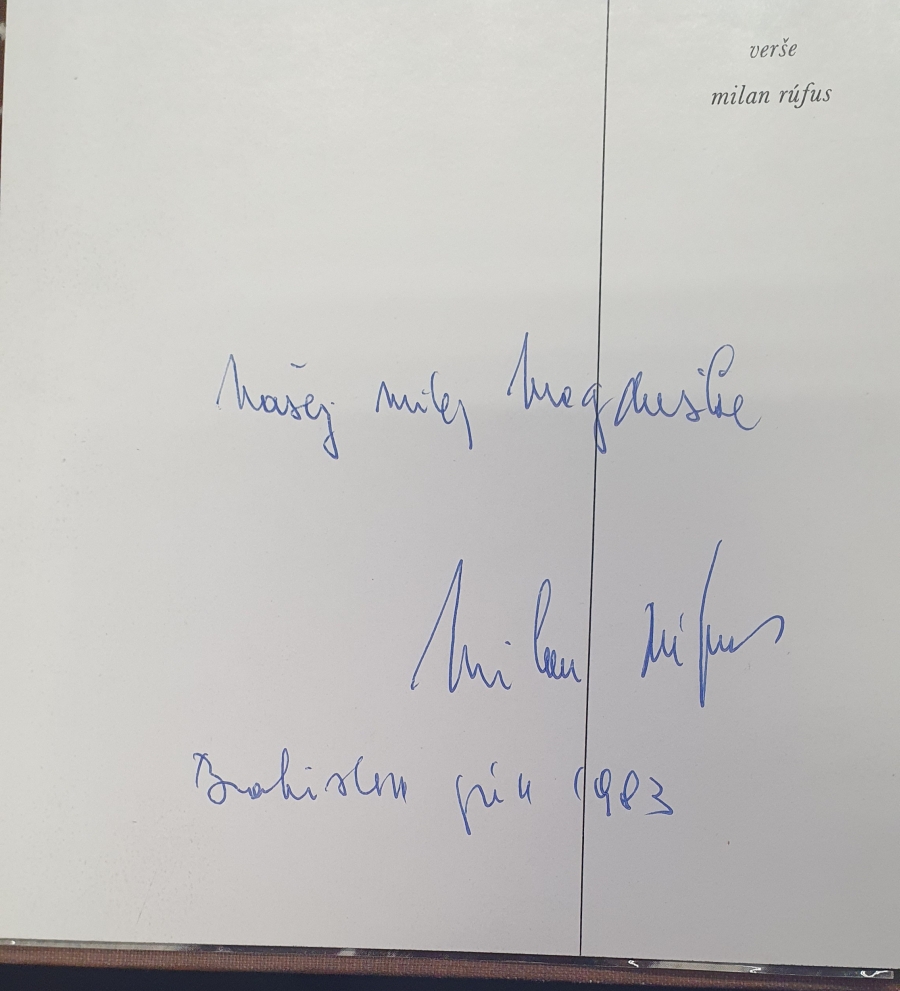 verše
milan rúfus
Našej milej Magduške
Milan Rúfus
Bratislava jún 1983